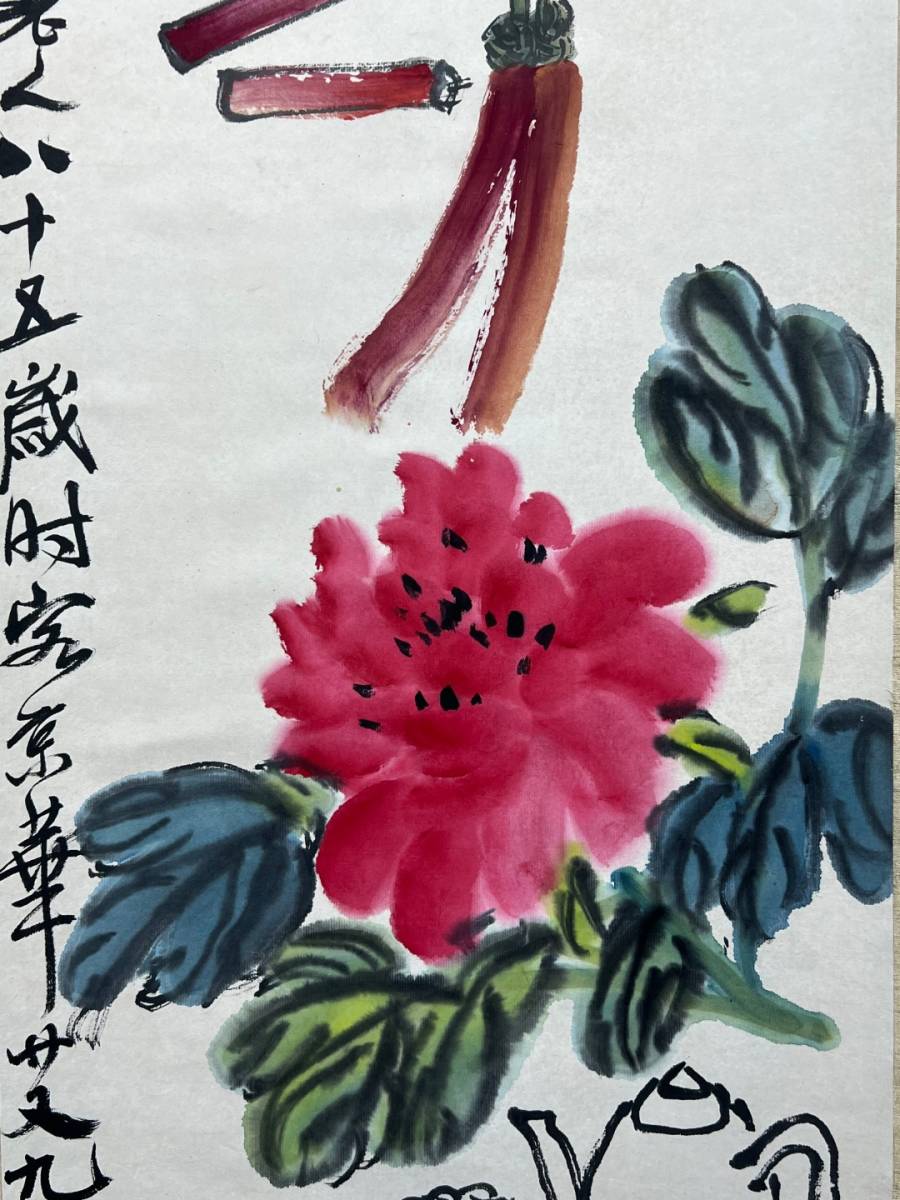 老人八十五歲时客京華廿又九